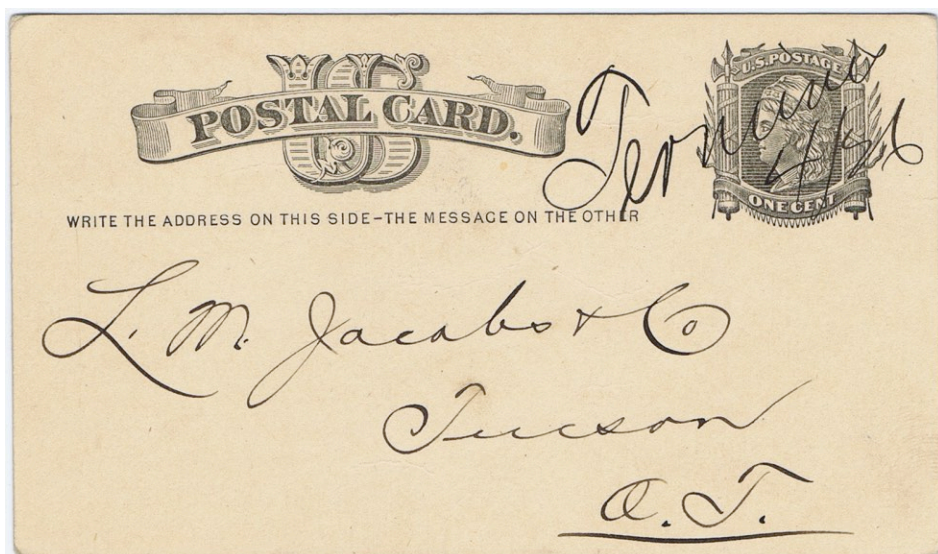 US
POSTAL CARD.
U.S. POSTAGE
ONE CENT
WRITE THE ADDRESS ON THIS SIDE-THE MESSAGE ON THE OTHER
L. M. Jacobs & Co
Tucson
A. T.